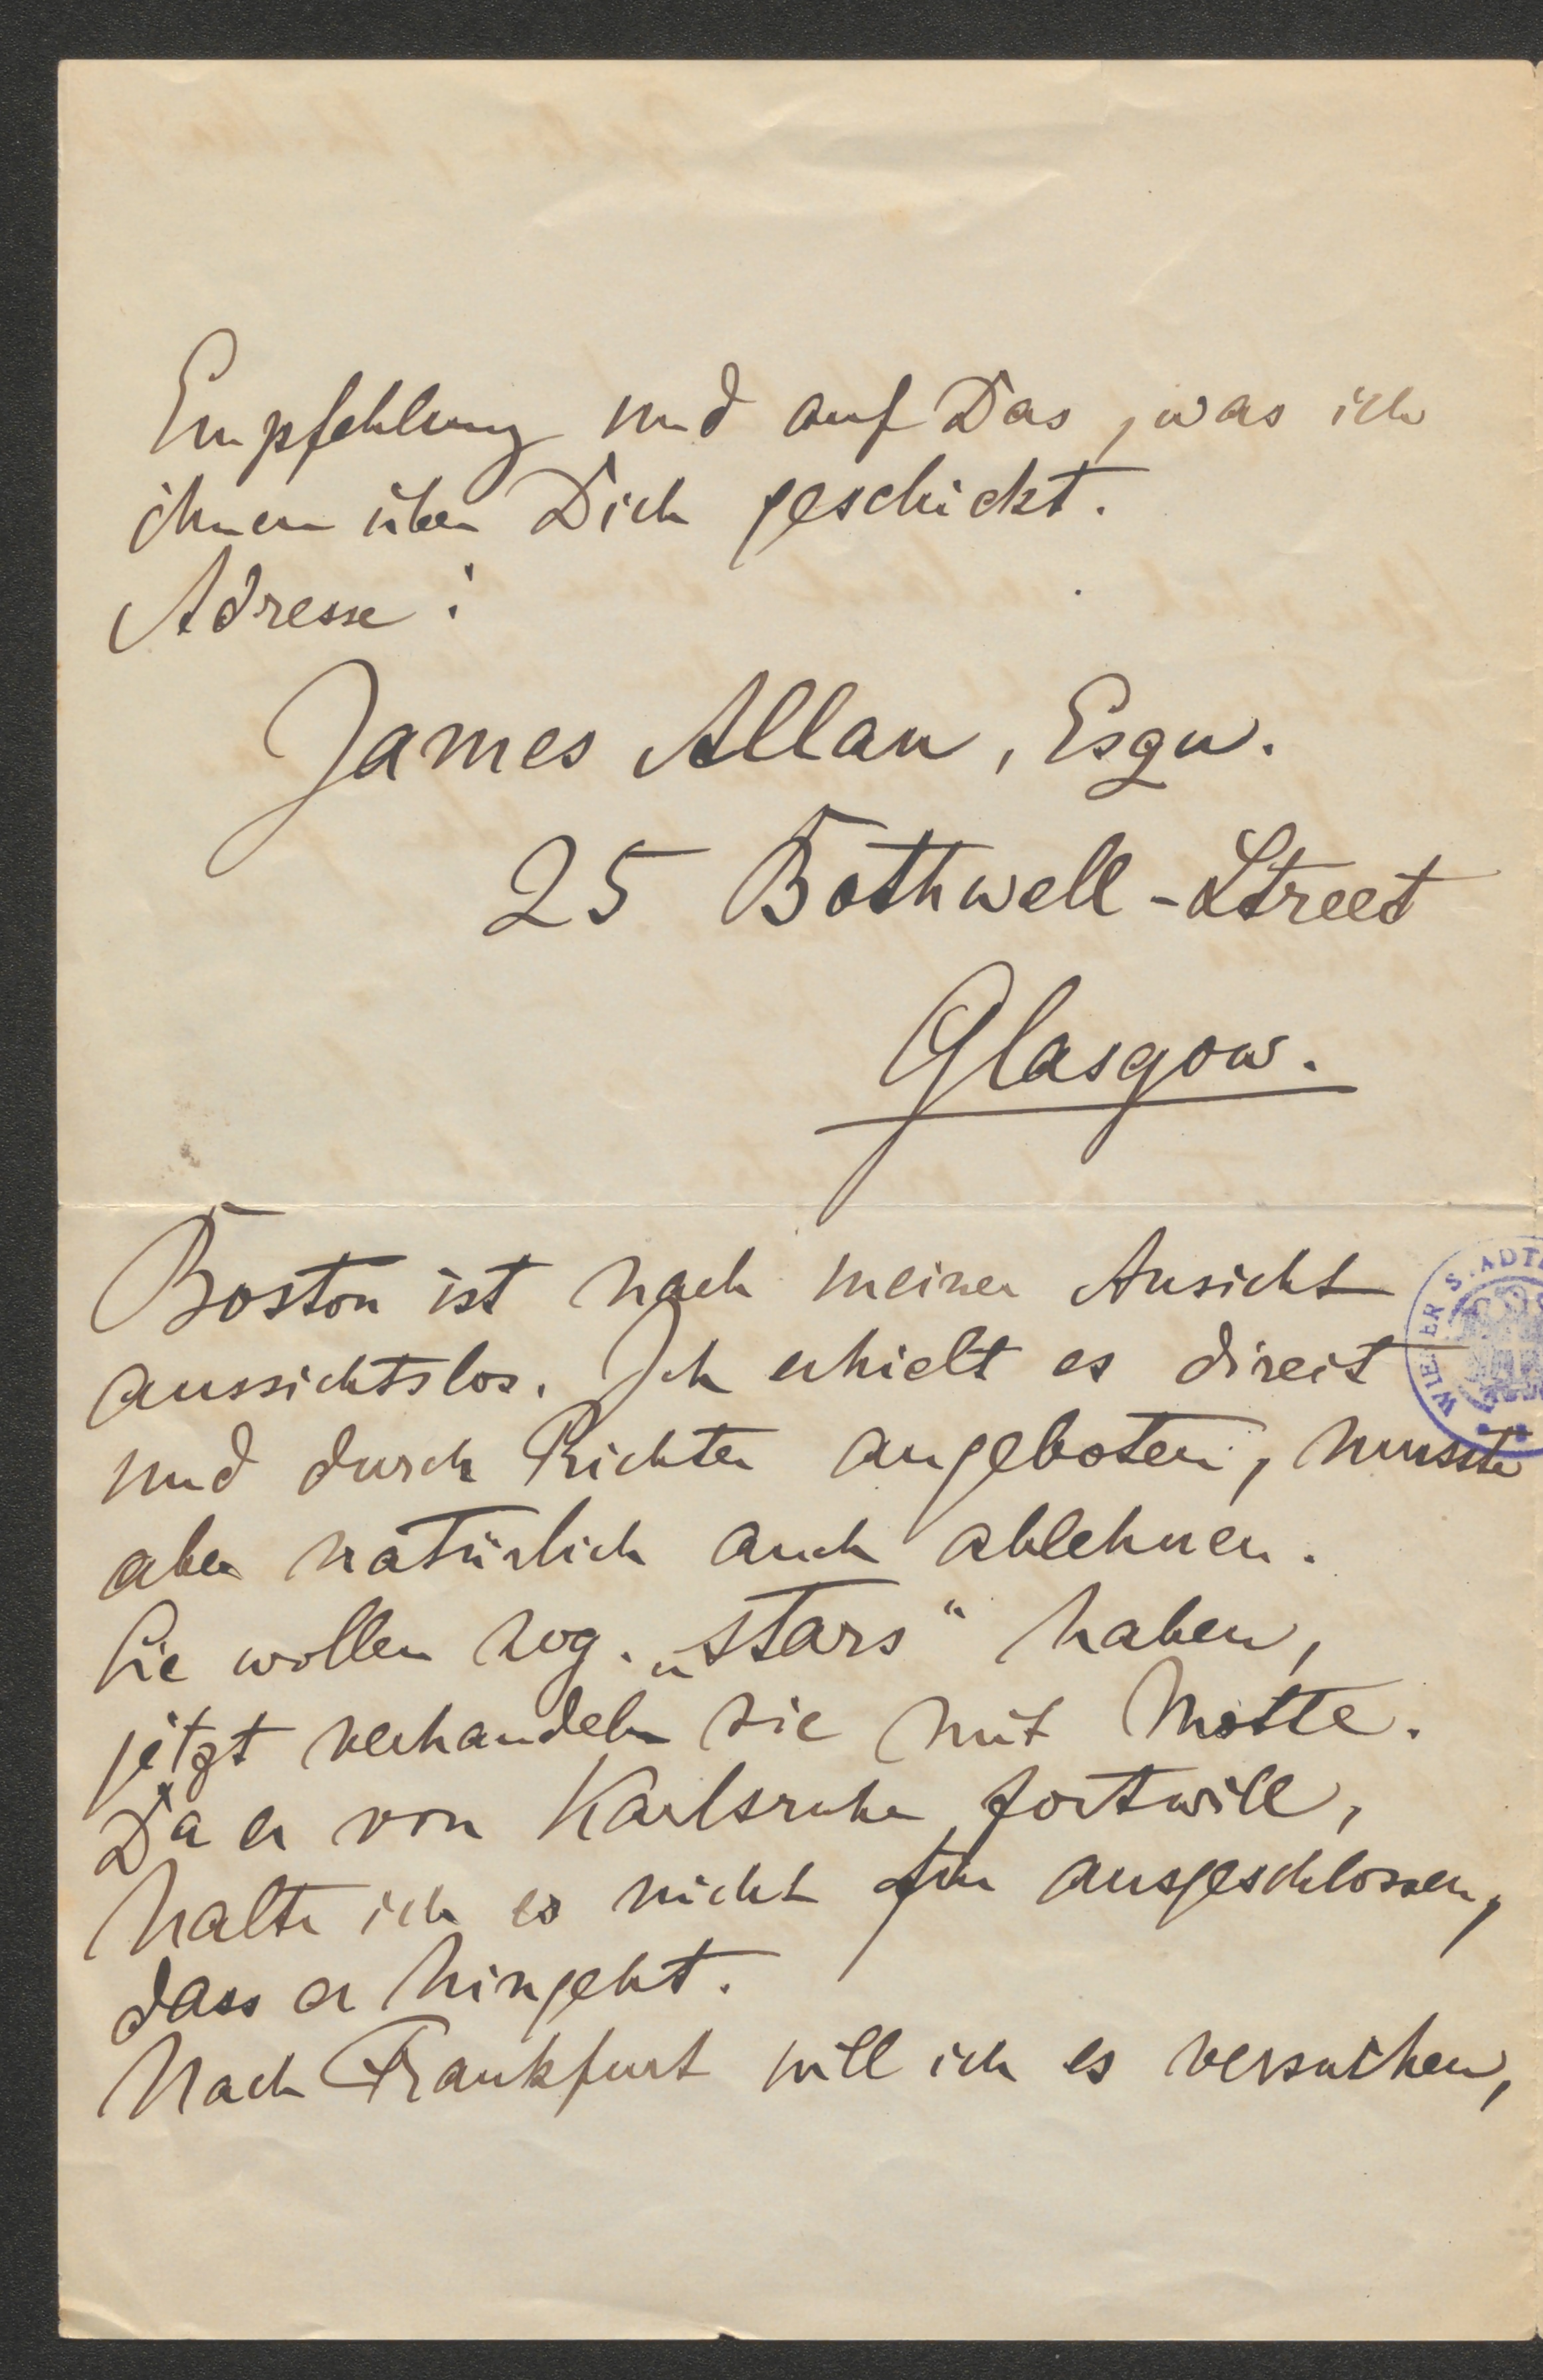 Empfehlung und auf Das, was ich
ihnen über Dich geschickt.
Adresse:
James Allan, Esqu.
25 Bothwell-Street
Glasgow.
Boston ist nach meiner Ansicht
aussichtslos. Ich erhielt es direct
und durch Richter angeboten, musste
aber natürlich auch ablehnen.
Sie wollen sog. „stars“ haben,
jetzt verhandeln sie mit Mottl.
Da er von Karlsruhe fortwill,
halte ich es nicht für ausgeschlossen,
dass er hingeht.
Nach Frankfurt will ich es versuchen,
WIENER STADT